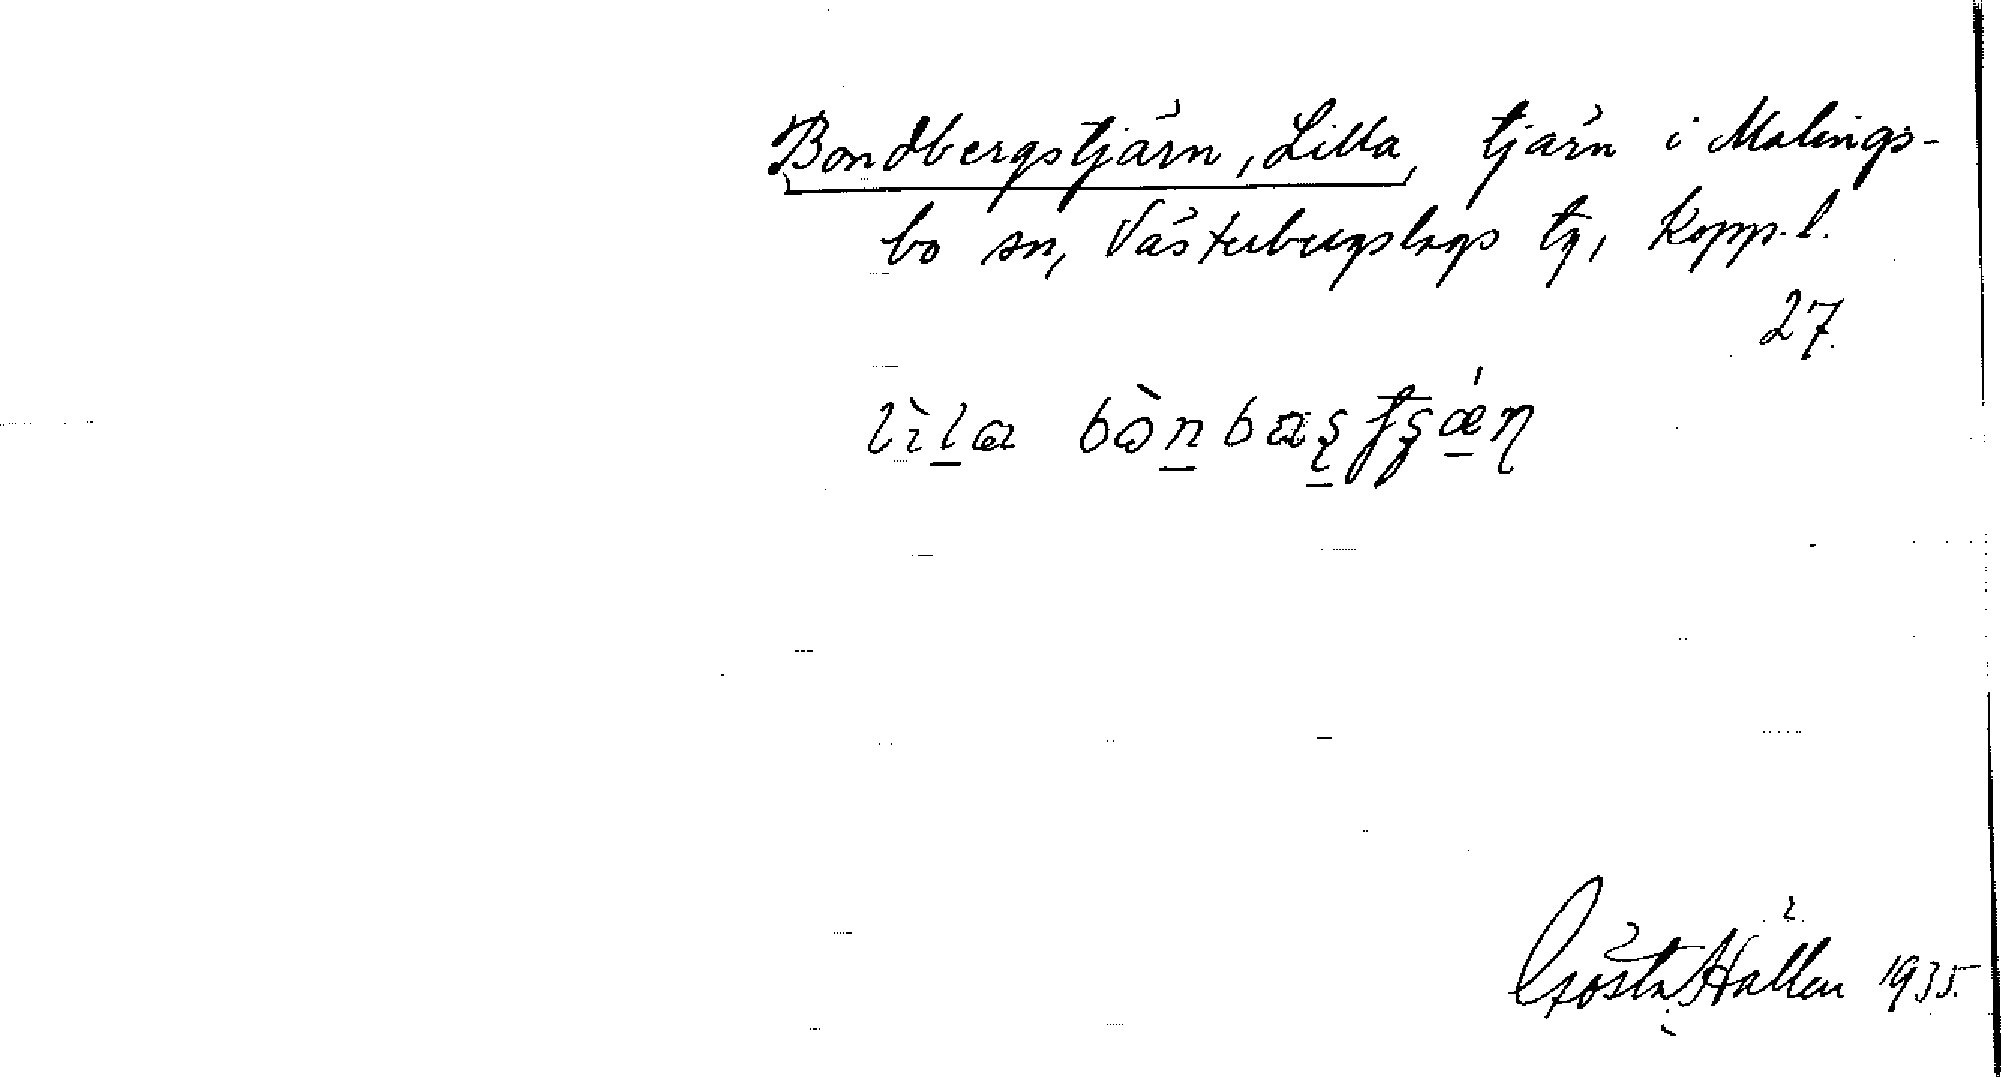 Bondbergstjärn, Lilla, tjärn i Malings-
bo sn, Västerbergslags tg, Kopp. l.
27.
lìla bònbaʂtʂǽɳ
Gösta Hallén 1935.